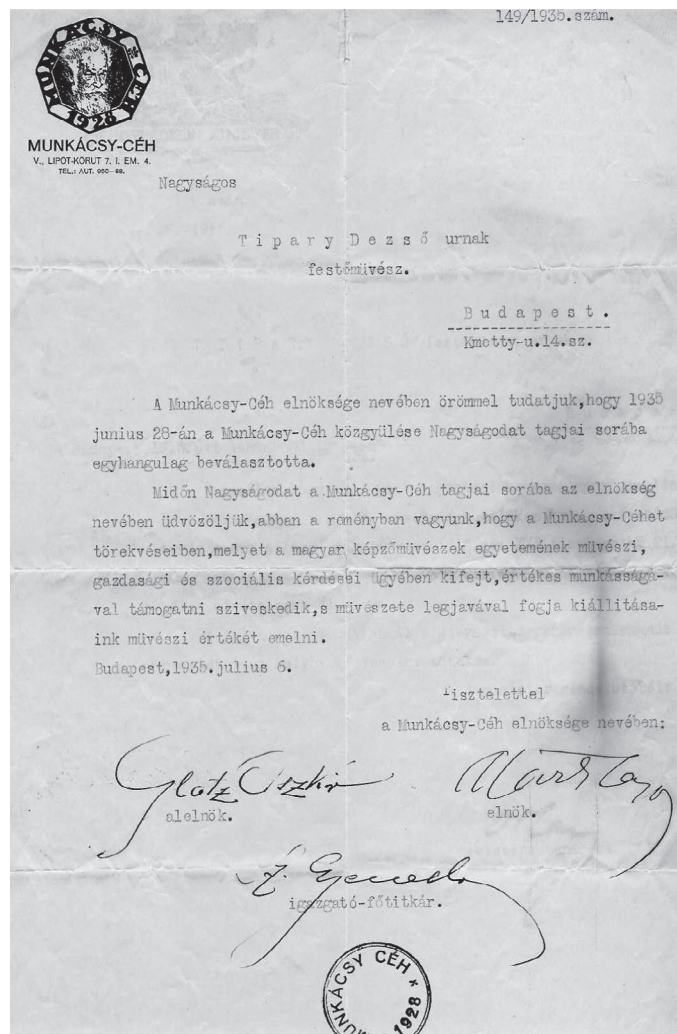 149/1935.szám.
MUNKÁCSY CÉH
1928
MUNKÁCSY-CÉH
V., LIPÓT-KÖRUT 7. I. EM. 4.
TEL.: AUT.
Nagyságos
Tipary Dezső urnak
festőmüvész.
Budapest.
Kmetty-u.14.sz.
A Munkácsy-Céh elnöksége nevében örömmel tudatjuk,hogy 1935
junius 28-án a Munkácsy-Céh közgyülése Nagyságodat tagjai sorába
egyhangulag beválasztotta.
Midőn Nagyságodat a Munkácsy-Céh tagjai sorába az elnökség
nevében üdvözöljük,abban a reményban vagyunk,hogy a Munkácsy-Céhet
törekvéseiben,melyet a magyar képzőmüvészek egyetemének müvészi,
gazdasági és szociális kérdései ügyében kifejt,értékes munkásságá-
val támogatni sziveskedik,s müvészete legjavával fogja kiállitása-
ink müvészi értékét emelni.
Budapest,1935.julius 6.
Tisztelettel
a Munkácsy-Céh elnöksége nevében:
Glatz Oszkár
alelnök.
elnök.
igazgató-főtitkár.
MUNKÁCSY CÉH * 1928